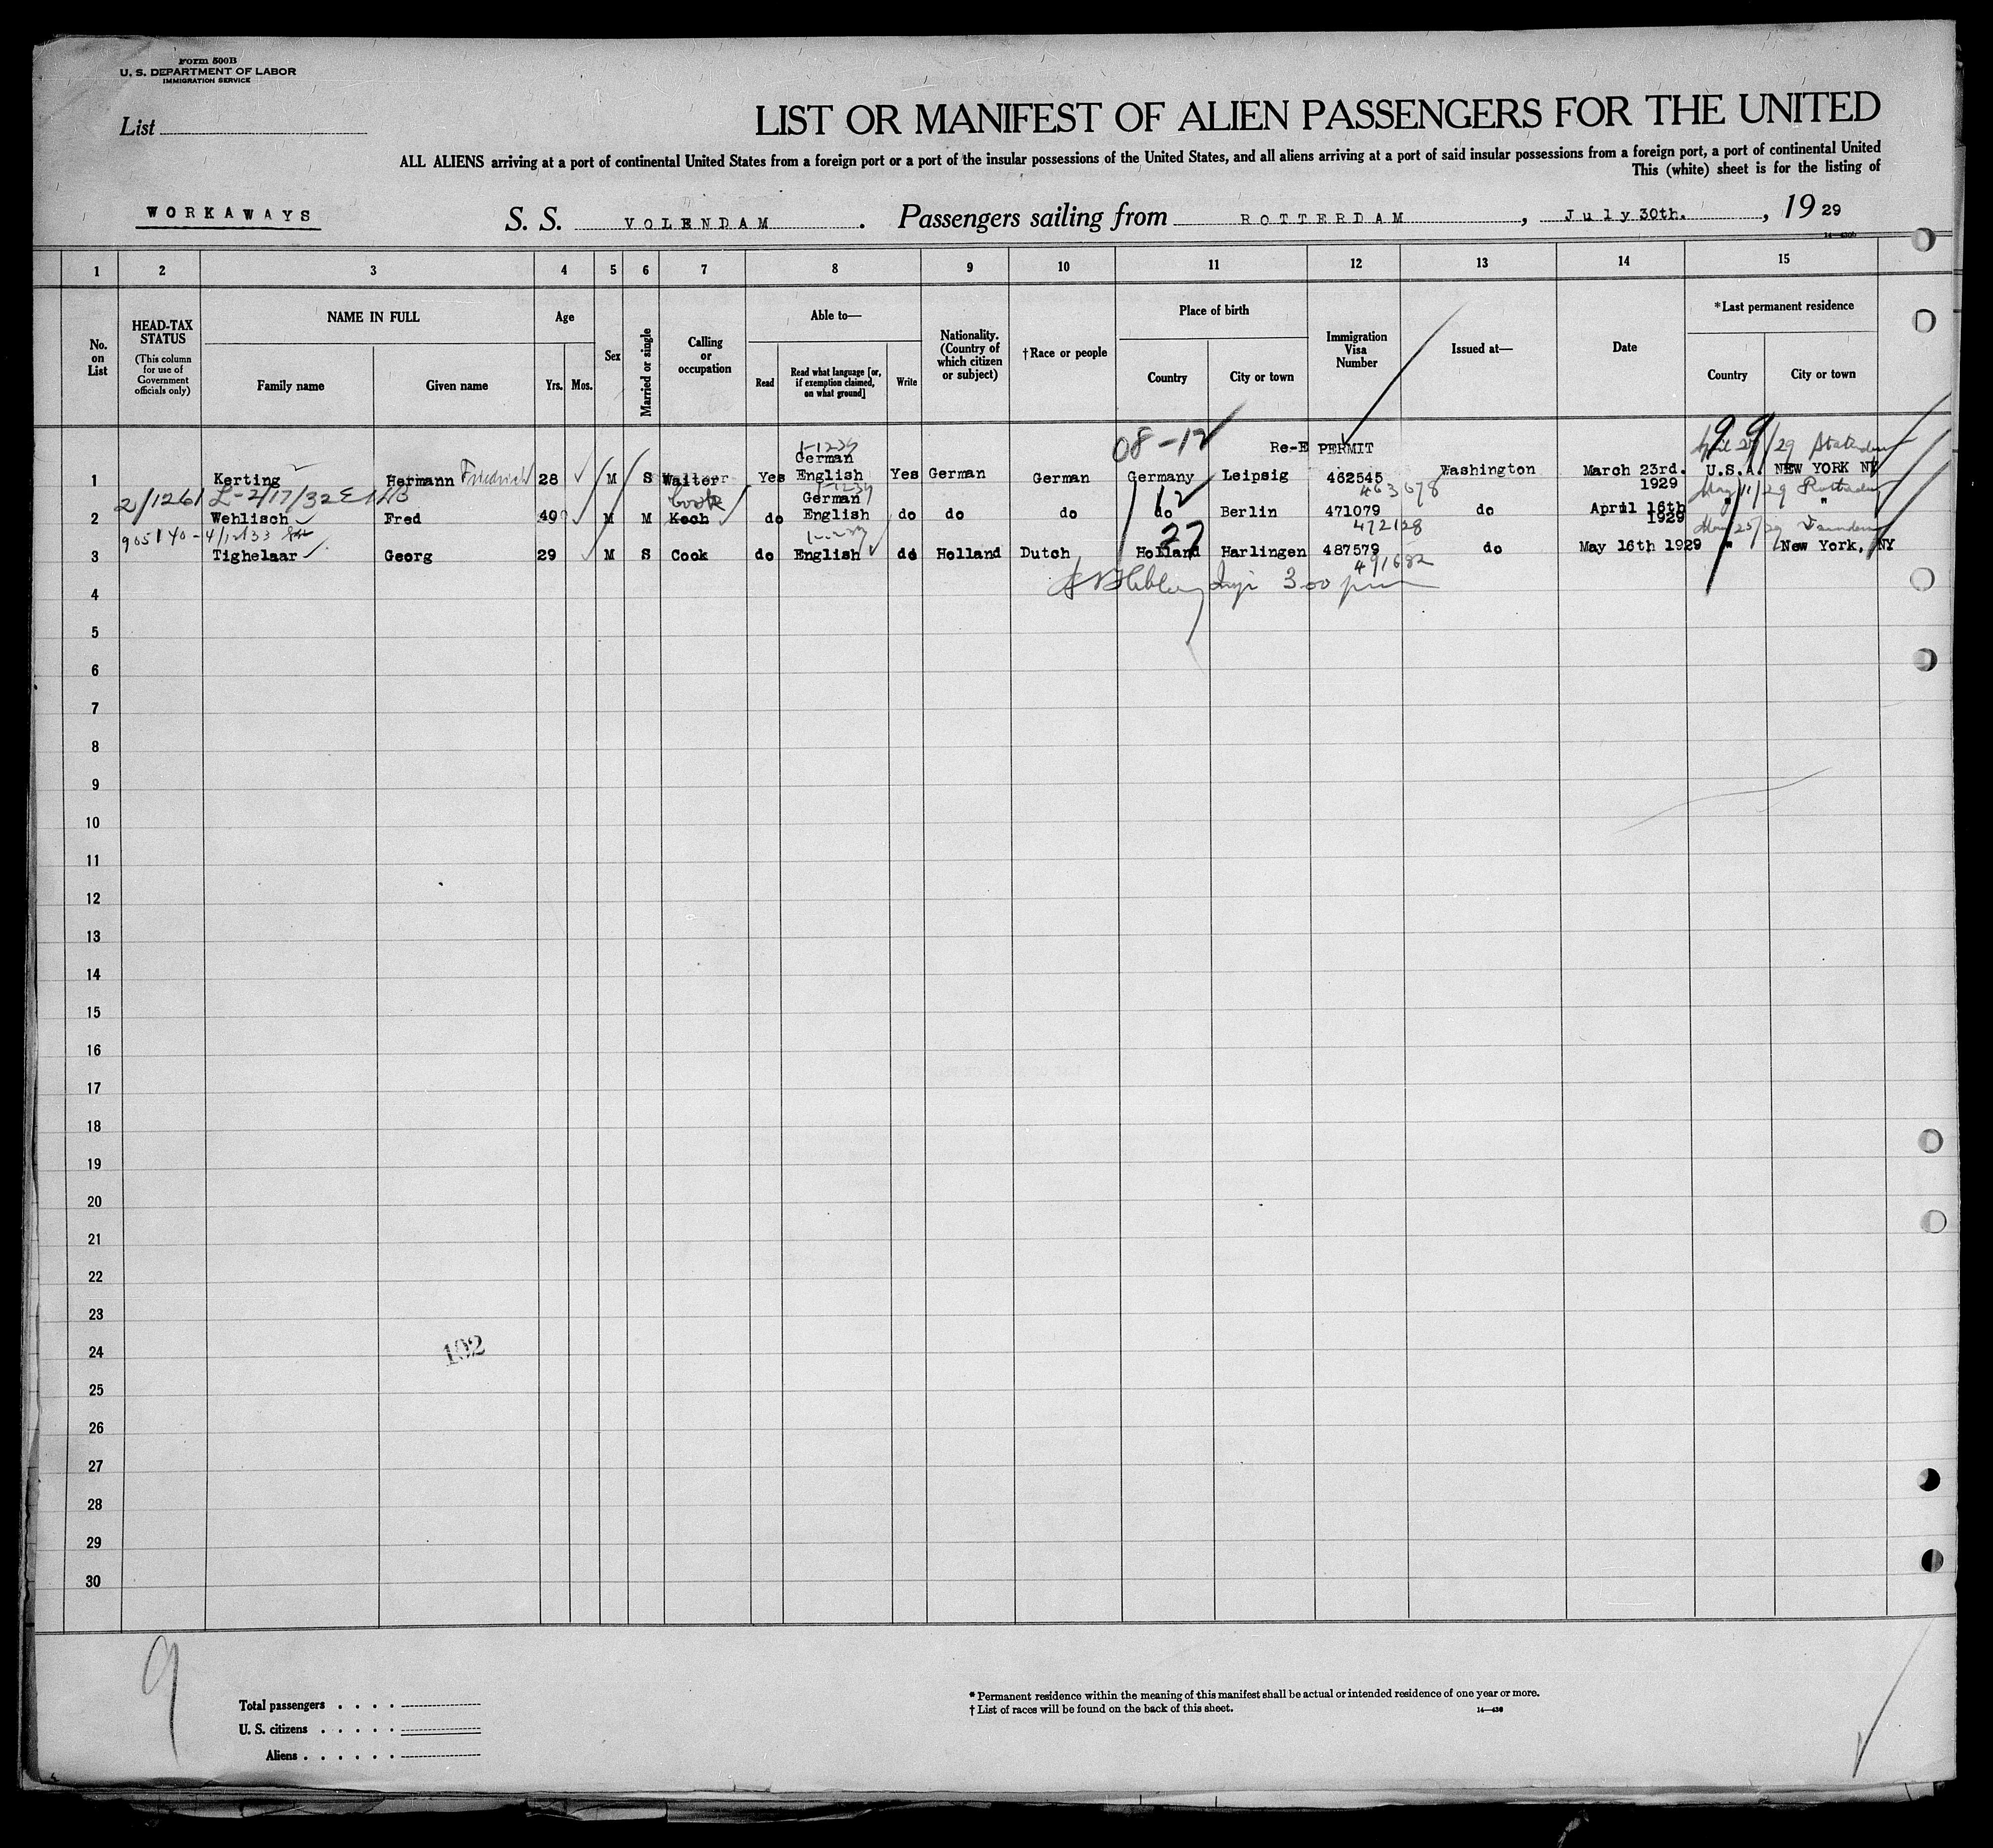 Form 500B
U. S. DEPARTMENT OF LABOR
IMMIGRATION SERVICE
List
LIST OR MANIFEST OF ALIEN PASSENGERS FOR THE UNITED
ALL ALIENS arriving at a port of continental United States from a foreign port or a port of the insular possessions of the United States, and all aliens arriving at a port of said insular possessions from a foreign port, a port of continental United
This (white) sheet is for the listing of
WORKAWAYS S. S. VOLENDAM . Passengers sailing from ROTTERDAM , July 30th. , 19 29
1 2 3 4 5 6 7 8 9 10 11 12 13 14 15
No. on List
HEAD-TAX STATUS
(This column for use of Government officials only)
NAME IN FULL
Family name Given name
Age
Yrs. Mos.
Sex
Married or single
Calling or occupation
Able to—
Read
Read what language [or, if exemption claimed, on what ground]
Write
Nationality. (Country of which citizen or subject)
†Race or people
Place of birth
Country City or town
Immigration Visa Number
Issued at—
Date
*Last permanent residence
Country City or town
08-12 Re-E PERMIT
1 Kerting Hermann Friedrich 28 M S Waiter Yes German English Yes German German Germany Leipsig 462545 Washington March 23rd. 1929 U.S.A. NEW YORK NY
463678
2/1261 2/17/32
2 Wehlisch Fred 40 M M Koch Cook do German English do do do do 12 Berlin 471079 do April 16th 1929 " "
472128
905140 - 4/12/33
3 Tighelaar Georg 29 M S Cook do English do Holland Dutch Holland 27 Harlingen 487579 do May 16th 1929 " New York, NY
491682
3 00 pm
4
5
6
7
8
9
10
11
12
13
14
15
16
17
18
19
20
21
22
23
24
25
26
27
28
29
30
102
9
Total passengers
U. S. citizens
Aliens
* Permanent residence within the meaning of this manifest shall be actual or intended residence of one year or more.
† List of races will be found on the back of this sheet.
14—430